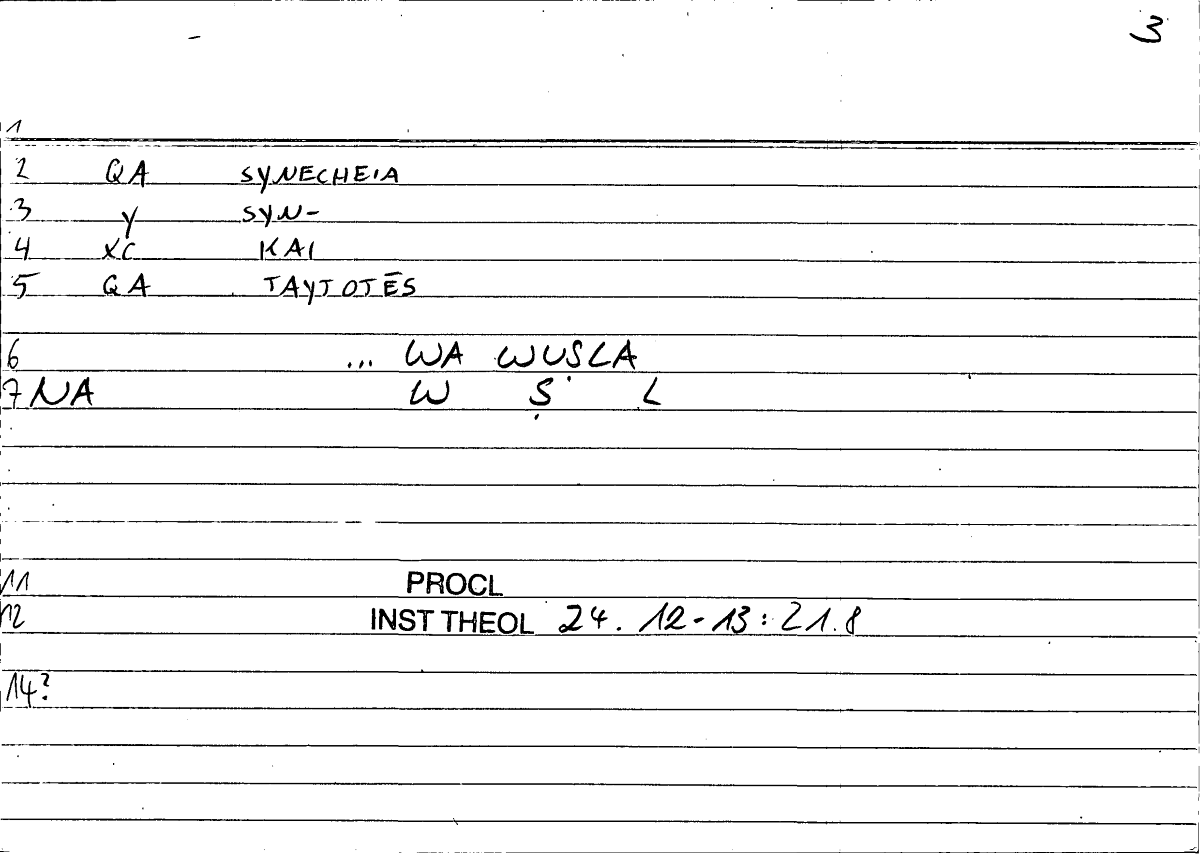 3
1
2 QA SYNECHEIA
3 Y SYN-
4 XC KAI
5 QA TAYTOTĒS
6 ... WA WUSLA
7 NA W Ṣ L
11 PROCL
12 INST THEOL 24. 12-13: 21.8
14?